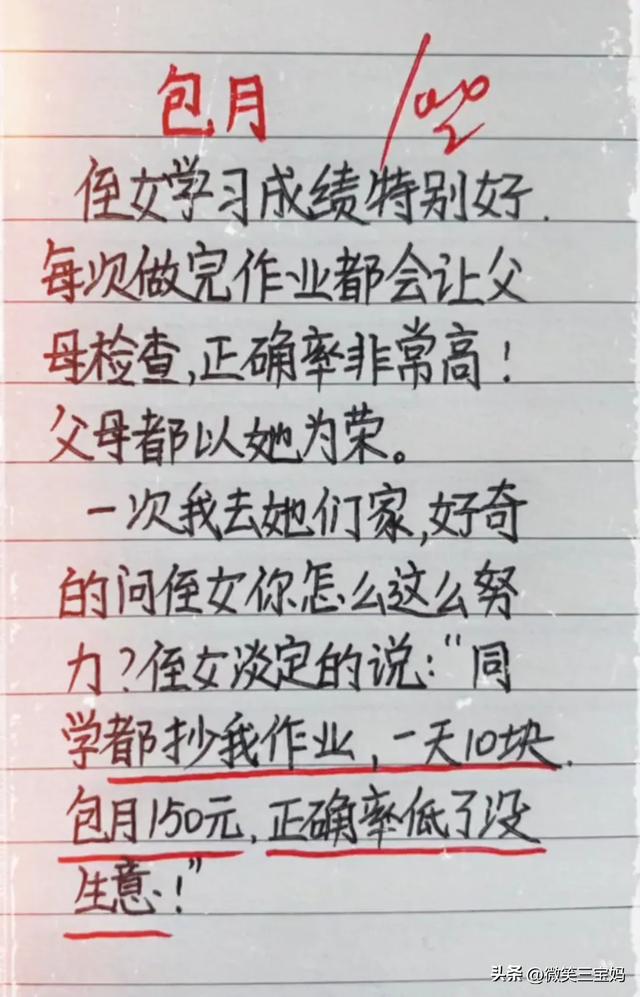 包月
侄女学习成绩特别好.
每次做完作业都会让父
母检查,正确率非常高!
父母都以她为荣。
一次我去她们家,好奇
的问侄女你怎么这么努
力?侄女淡定的说:“同
学都抄我作业,一天10块.
包月150元,正确率低了没
生意!”
头条 @微笑三宝妈